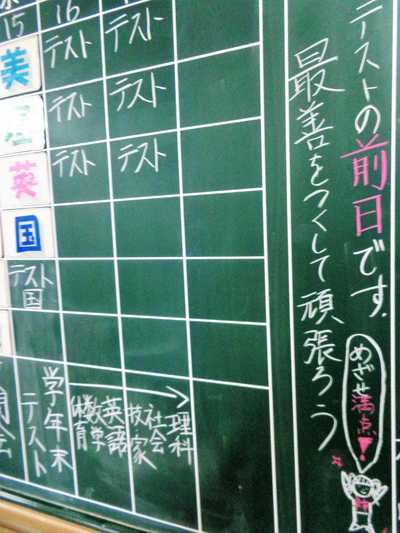 テストの前日です.
最善をつくして頑張ろう
めざせ満点!
15
16
美
テスト
テスト
理
テスト
テスト
英
テスト
テスト
国
テスト
国
学年末
テスト
体育
数学
英語
技家
社会
理科